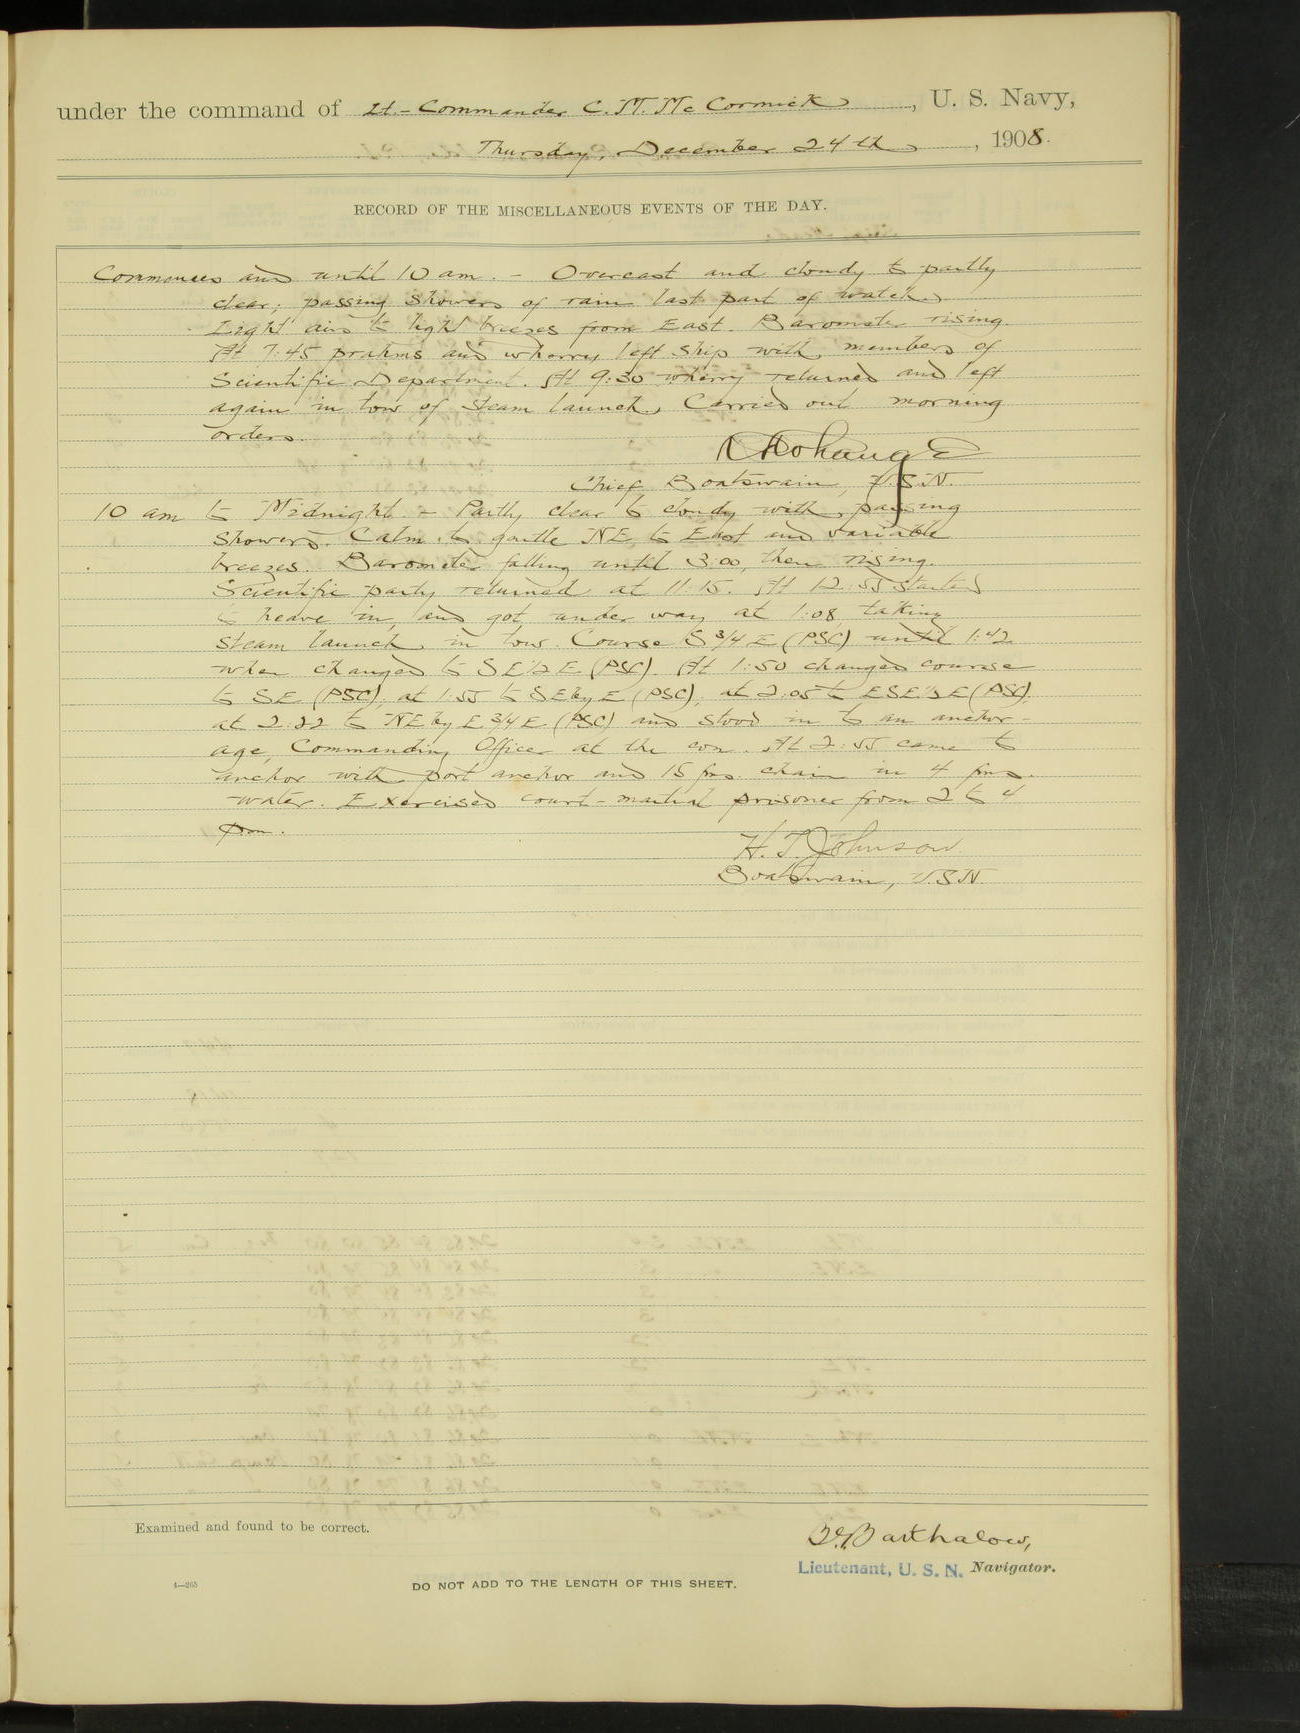 under the command of Lt.-Commander C. M. McCormick, U. S. Navy,
Thursday, December 24th, 1908.
RECORD OF THE MISCELLANEOUS EVENTS OF THE DAY.
Commences and until 10 am. - Overcast and cloudy to partly
clear; passing showers of rain last part of watch.
Light airs to light breezes from East. Barometer rising.
At 7:45 prahms and wherry left ship with members of
Scientific Department. At 9:30 wherry returned and left
again in tow of steam launch. Carried out morning
orders.
Chief Boatswain, U.S.N.
10 am to Midnight - Partly clear to cloudy with passing
showers. Calm to gentle NE to East and variable
breezes. Barometer falling until 3:00, then rising.
Scientific party returned at 11:15. At 12:55 started
to heave in, and got under way at 1:08, taking
steam launch in tow. Course S 3/4 E (PSC) until 1:42
when changed to SE 1/2 E (PSC). At 1:50 changed course
to SE (PSC), at 1:55 to SE by E (PSC), at 2:05 to ESE 1/2 E (PSC),
at 2:22 to NE by E 3/4 E (PSC) and stood in to an anchor-
age, Commanding Officer at the con. At 2:55 came to
anchor with port anchor and 15 fms. chain in 4 fms.
water. Exercised court-martial prisoner from 2 to 4
pm.
H. T. Johnson
Boatswain, U.S.N.
Examined and found to be correct.
Barthalow,
Lieutenant, U. S. N. Navigator.
4—265
DO NOT ADD TO THE LENGTH OF THIS SHEET.